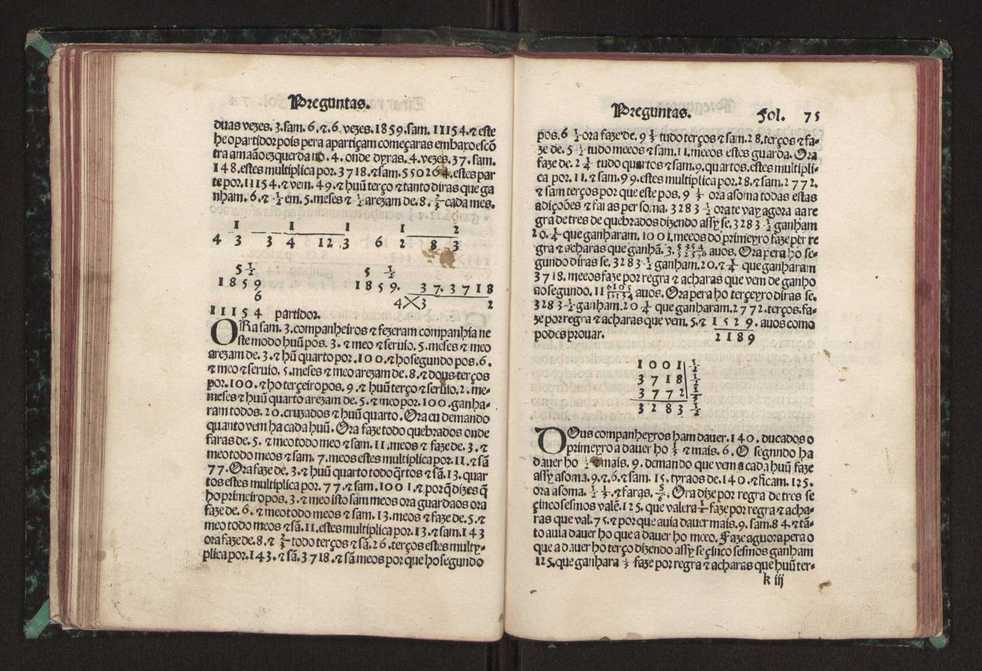 Preguntas.
duas vezes. 3. sam. 6. ⁊. 6. vezes. 1859. sam. 11154. ⁊ este
he o partidor pois pera a partiçam começaras embaxo escõ
tra a mão ezquerda no. 4. onde dyras. 4. vezes. 37. sam.
148. estes multiplica por. 3718. ⁊ sam. 550264. estes par
te por. 11154. ⁊ vem. 49. ⁊ huũ terço ⁊ tanto diras que ga
nham. 6. ⁊ ½ em. 5. meses ⁊ ½ a rezam de. 8. ⅔ cada mes.
1 1 1 1 2
4 3 3 4 12 3 6 2 8 3
5 ½ 5 ½
1859 1859. 37. 3718
6 4 3 2
11154 partidor.
ORa sam. 3. companheiros ⁊ fezeram companhia ne
ste modo huũ pos. 3. ⁊ meo ⁊ seruio. 5. meses ⁊ meo
arezam de. 3. ⁊ huũ quarto por. 100. ⁊ ho segundo pos. 6.
⁊ meo ⁊ seruio. 5. meses ⁊ meo arezam de. 8. ⁊ dous terços
por. 100. ⁊ ho terçeiro pos. 9. ⁊ huũ terço ⁊ seruio. 2. me-
meses ⁊ huũ quarto arezam de. 5. ⁊ meo por. 100. ganha-
ram todos. 20. cruzados ⁊ huũ quarto. Ora eu demando
quanto vem ha cada huũ. Ora faze todo quebrados onde
faras de. 5. ⁊ meo todo meo ⁊ sam. 11. meos ⁊ faze de. 3. ⁊
meo todo meos ⁊ sam. 7. meos estes multiplica por. 11. ⁊ sã
77. Ora faze de. 3. ⁊ huũ quarto todo q̃rtos ⁊ sã. 13. quar
tos estes multiplica por. 77. ⁊ sam. 1001. ⁊ porq̃ dizes q̃
ho primeiro pos. 3. ⁊ meo isto sam meos ora guarda os ora
faze de. 6. ⁊ meo todo meos ⁊ sam. 13. meos ⁊ faze de. 5. ⁊
meo todo meos ⁊ sã. 11. estes multiplica por. 13. ⁊ sam. 143
ora faze de. 8. ⁊ ⅔ todo terços ⁊ sã. 26. terços estes multy-
plica por. 143. ⁊ sã. 3718. ⁊ sã meos por que ho segundo
Preguntas. Fol. 75
pos. 6 ½ ora faze de. 9 ⅓ tudo terços ⁊ sam. 28. terços ⁊ fa-
ze de. 5 ½ tudo meos ⁊ sam. 11. meos estes guarda. Ora
faze de. 2 ¼ tudo quartos ⁊ sam. 9. quartos. estes multipli-
ca por. 11. ⁊ sam. 99. estes multiplica por. 28. ⁊ sam. 2772.
⁊ sam terços por que este pos. 9 ⅓ ora asoma todas estas
adições ⁊ faras per soma. 3283 ½ ora te vay agora aa re
gra de tres de quebrados dizendo assy se. 3283 ½ ganham
20. ¼ que ganharam. 1001. meos do primeyro faze per re
gra ⁊ acharas que ganhã. 3. auos. Ora pera ho se-
gundo diras se. 3283 ½ ganham. 20. ⁊ ¼ que ganharam
3718. meos faze por regra ⁊ acharas que vem de ganho
no segundo. 11 auos. Ora pera ho terçeyro diras se.
3283 ½ ganham. 20 ¼ que ganharam. 2772. terços. fa-
ze por regra ⁊ acharas que vem. 5. ⁊ 1529. auos como
podes prouar. 2189
1001 ½
3718 ½
3772
3283 ½
DOus companheyros ham dauer. 140. ducados o
primeyro a dauer ho ½ ⁊ mais. 6. O segundo ha
dauer ho ⅓ ⁊ mais. 9. demando que vem a cada huũ faze
assy asoma. 9. ⁊. 6. ⁊ sam. 15. tyra os de. 140. ⁊ ficam. 125.
ora asoma. ½ ⅓. ⁊ faras. ⅚. Ora dize por regra de tres se
çinco sesmos vale. 125. que valera ½ faze por regra ⁊ acha-
ras que val. 75. ⁊ por que auia dauer mais. 9. sam. 84. ⁊ tã-
to auia dauer ho que a dauer ho meo. Faze agora pera o
que a dauer ho terço dizendo assy se çinco sesmos ganham
125. que ganhara ⅓ faze por regra ⁊ acharas que huũ ter-
k iij